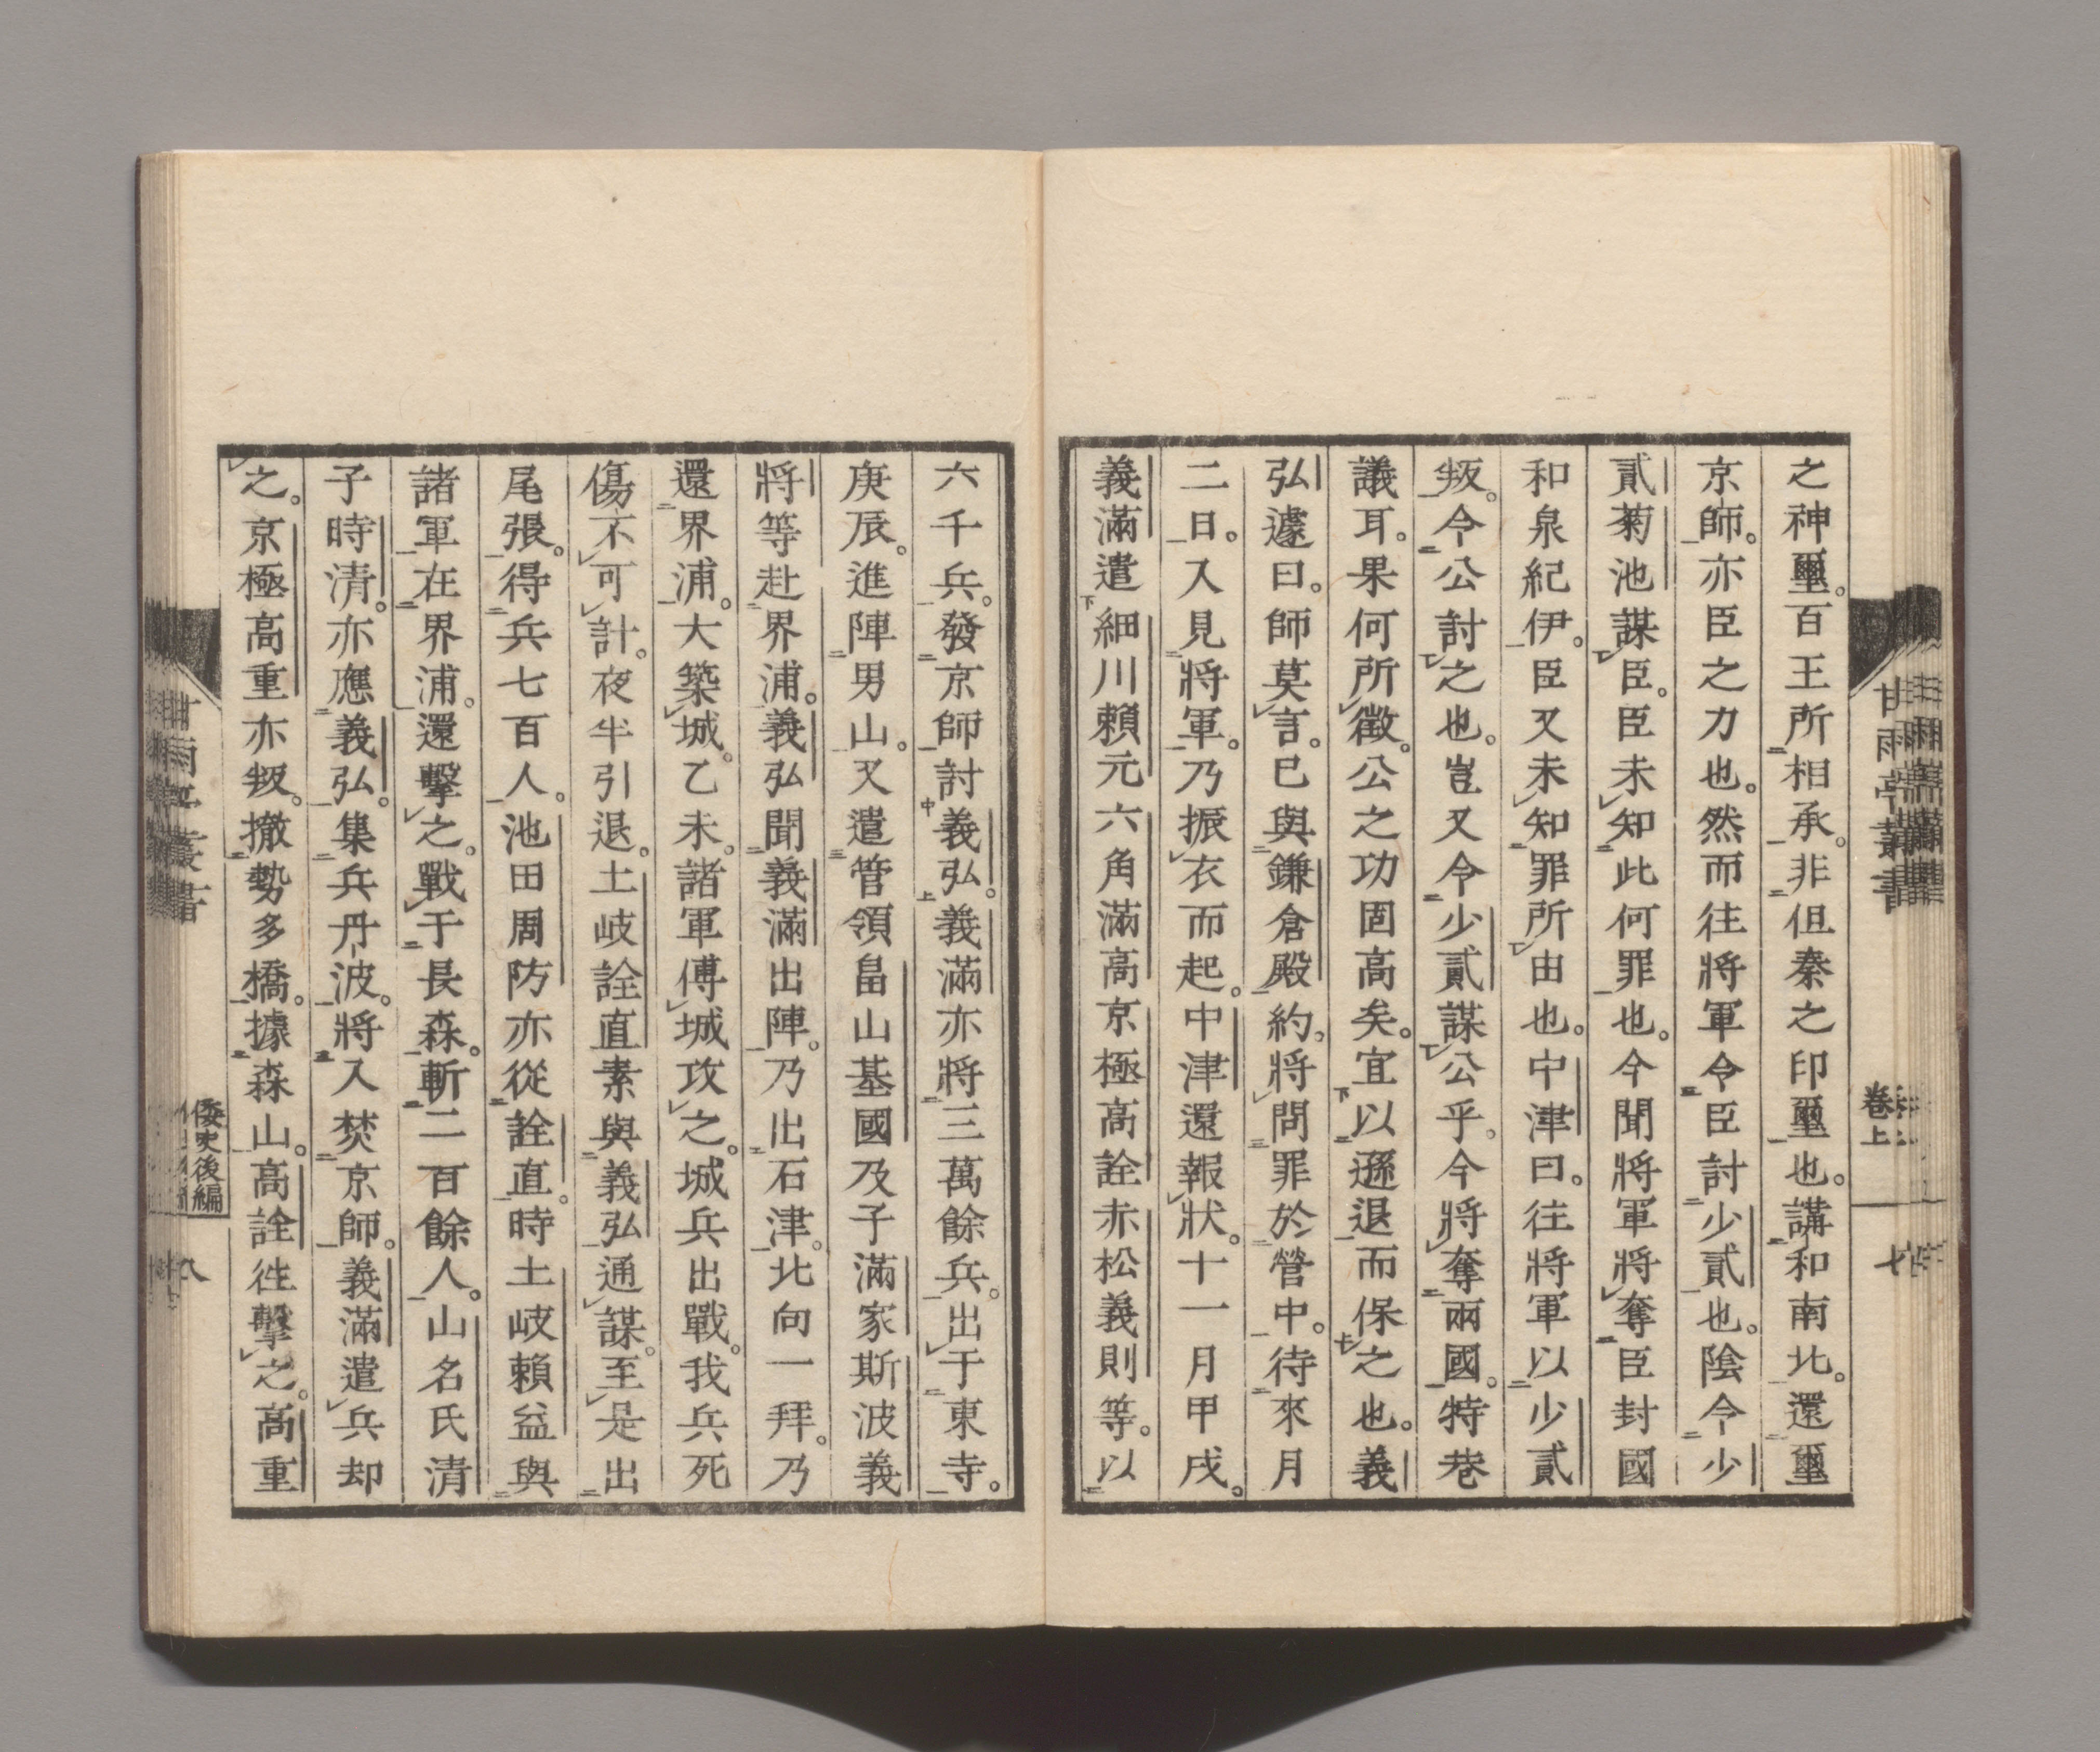 之神璽。百王所相承。非但秦之印璽也。講和南北。還璽
京師。亦臣之力也。然而往將軍令臣討少貳也。陰令少
貳菊池謀臣。臣未知此何罪也。今聞將軍將奪臣封國
和泉紀伊。臣又未知罪所由也。中津曰。往將軍以少貳
叛。令公討之也。豈又令少貳謀公乎。今將奪兩國。特巷
議耳。果何所徵。公之功固高矣。宜以遜退而保之也。義
弘遽曰。師莫言。已與鎌倉殿約。將問罪於營中。待來月
二日。入見將軍。乃振衣而起。中津還報狀。十一月甲戌。
義滿遣細川賴元六角滿高京極高詮赤松義則等。以
甘雨亭叢書
卷上
七
六千兵。發京師討義弘。義滿亦將三萬餘兵。出于東寺。
庚辰。進陣男山。又遣管領畠山基國及子滿家斯波義
將等赴界浦。義弘聞義滿出陣。乃出石津。北向一拜。乃
還界浦。大築城。乙未。諸軍傅城攻之。城兵出戰。我兵死
傷不可計。夜半引退。土岐詮直素與義弘通謀。至是出
尾張。得兵七百人。池田周防亦從詮直。時土岐賴益與
諸軍在界浦。還擊之。戰于長森。斬二百餘人。山名氏清
子時清。亦應義弘。集兵丹波。將入焚京師。義滿遣兵却
之。京極高重亦叛。撤勢多橋。據森山。高詮往擊之。高重
倭史後編
八